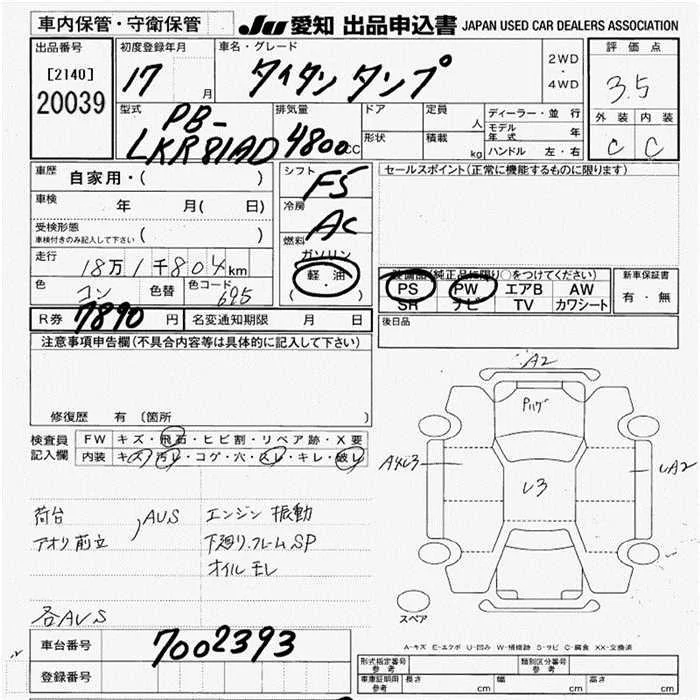 車内保管・守衛保管
JU 愛知 出品申込書 JAPAN USED CAR DEALERS ASSOCIATION
出品番号
[2140]
20039
初度登録年月
17 月
車名・グレード
タイタン ダンプ
2WD
・
4WD
評価点
3.5
外装 内装
C C
型式
PB-
LKR81AD
排気量
4800cc
ドア
形状
定員 人
積載 kg
ディーラー・並行
モデル年式 年
ハンドル 左・右
車歴
自家用・( )
車検
年 月( 日)
受検形態
車検付きのみ記入して下さい ( )
走行
18万1千804km
色 コン 色替 色コード 625
シフト
F5
冷房
AC
燃料
ガソリン
・
軽油
( )
セールスポイント(正常に機能するものに限ります)
装備品(純正品に限り○をつけてください)
PS PW エアB AW
SR ナビ TV カワシート
新車保証書
有・無
後日品
R券 7890円 名変通知期限 月 日
注意事項申告欄(不具合内容等は具体的に記入して下さい)
修復歴 有 〔箇所 〕
検査員記入欄
FW キズ・飛石・ヒビ割・リペア跡・X要
内装 キズ・汚レ・コゲ・穴・スレ・キレ・破レ
荷台
アオリ前立
,AUS
エンジン振動
下廻り.フレームSP
オイルモレ
各AUS
A2
U3
UA2
スペア
A-キズ E-エクボ U-凹み W-補修跡 S-サビ C-腐食 XX-交換済
車台番号 7002393
登録番号
形式指定番号
参考
類別区分番号
参考
車庫証明用
参考
長さ cm 幅 cm 高さ cm